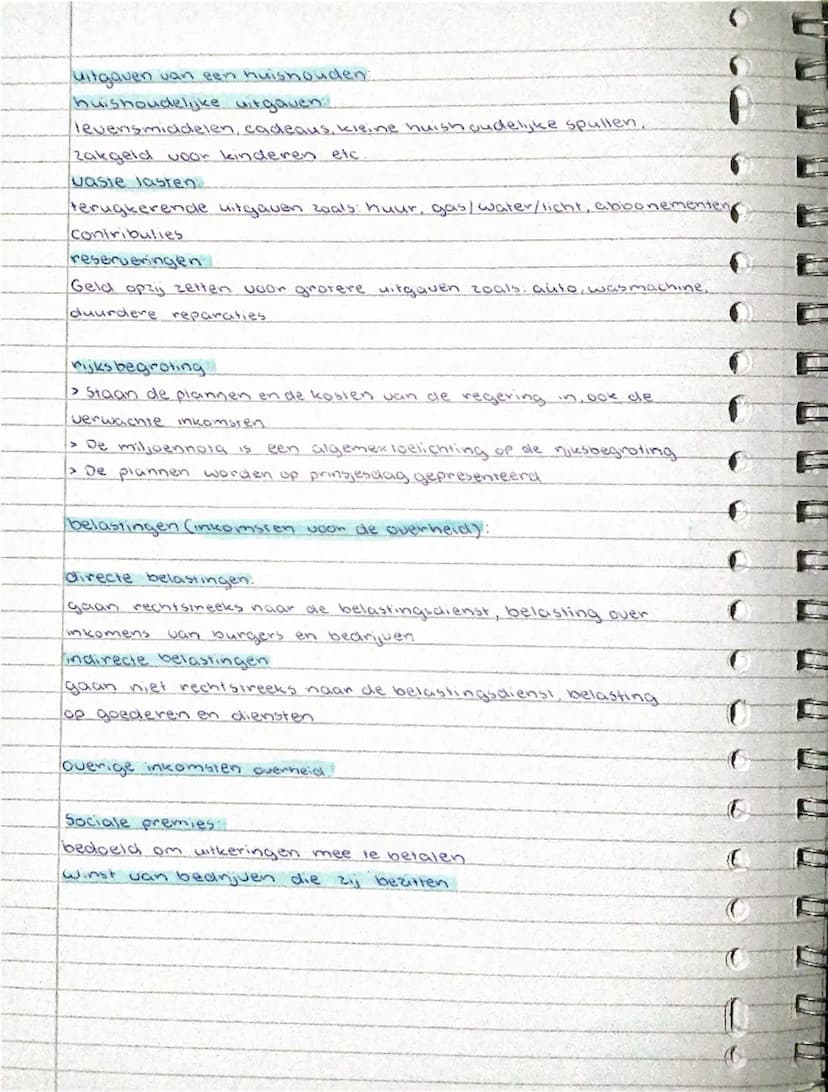 uitgaven van een huishouden:
huishoudelijke uitgaven:
levensmiddelen, cadeaus, kleine huishoudelijke spullen,
zakgeld voor kinderen etc.
vaste lasten:
terugkerende uitgaven zoals: huur, gas/water/licht, abbonementen,
contributies
reserveringen:
Geld opzij zetten voor grotere uitgaven zoals: auto, wasmachine,
duurdere reparaties
rijksbegroting:
> Staan de plannen en de kosten van de regering in, ook de
verwachte inkomsten
> De miljoennota is een algemene toelichting op de rijksbegroting
> De plannen worden op prinsjesdag gepresenteerd
belastingen (inkomsten voor de overheid):
directe belastingen:
gaan rechtstreeks naar de belastingsdienst, belasting over
inkomens van burgers en bedrijven
indirecte belastingen
gaan niet rechtstreeks naar de belastingsdienst, belasting
op goederen en diensten
overige inkomsten overheid
Sociale premies:
bedoeld om uitkeringen mee te betalen
winst van bedrijven die zij bezitten